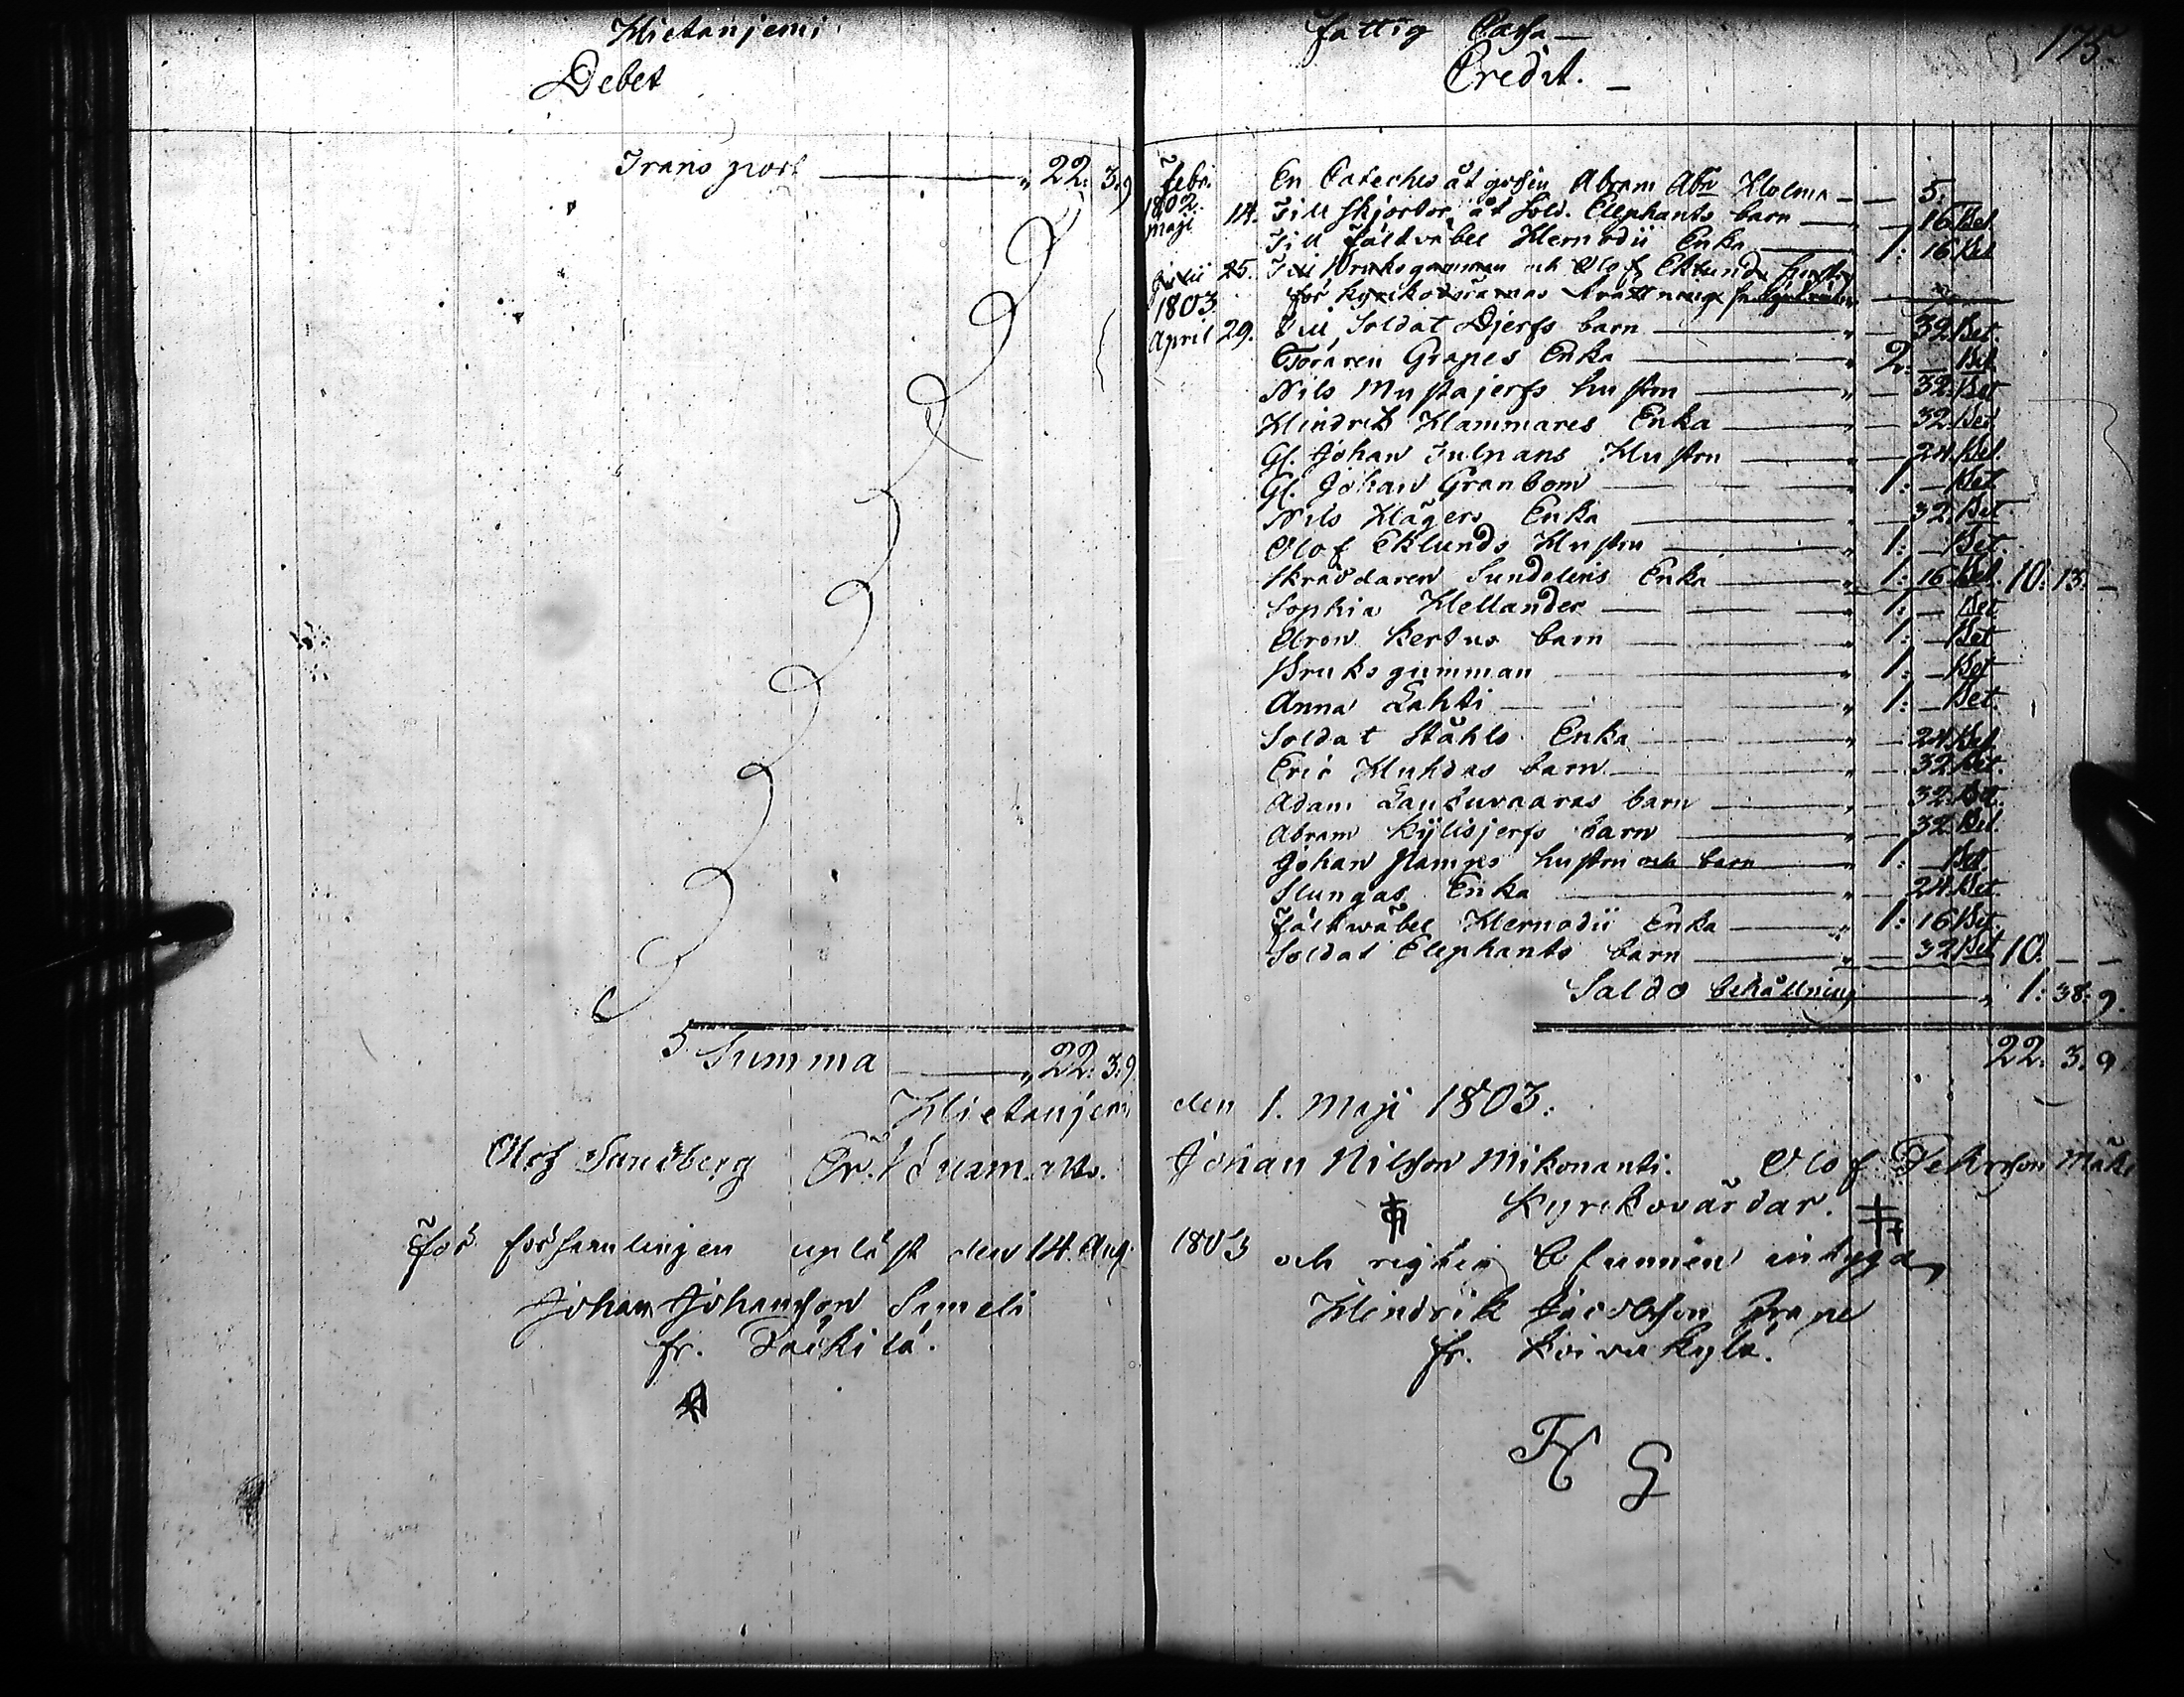 Hietaniemi
Debet
Transport — „ 22: 3: 9
Summa — „ 22: 3: 9
Hietaniemi
Olof Sundberg
för församlingen upläst den 14. Aug.
Johan Johansson Sameli
fr. Päckilä.
Fattig Cassa —
175.
Credit. —
Febr. 1802. En Cateches åt gossen Abram Abr Holma — 5.
Maji 14. Till skjortor åt Sold. Elephants barn — 16 Bet.
Till Fältväbel Hernodii Enka — 1: 16 Bet
Junii 25. Till Bruksgumman och Olof Eklunds hustru
för kyrkovärdarnas
1803.
April 29. Till Soldat Djerfs barn — „ — 32 Bet.
Toraren Grapes Enka — „ 2. — Bet.
Nils Mustajerfs hustru — „ — 32. Bet
Hindrik Hammares Enka — „ — 32. Bet.
Gl. Johan Tulpans Hustru — „ — 24. Bet.
Gl. Johan Granbom — „ 1: — Bet
Nils Hägers Enka — „ 32. Bet
Olof Eklunds Hustru — „ 1: — Bet.
Skräddaren Sundelins Enka — „ 1: 16 Bet. 10: 13. —
Sophia Hellander — „ 1: — Bet
Aron Kertus barn — „ 1: — Bet
Bruksgumman — „ 1: — Bet
Anna Lahti — „ 1: — Bet.
Soldat Ståhls Enka — „ — 24. Bet
Eric Huhdas barn — „ — 32 Bet.
Adam Lautuvaaras barn — „ — 32. Bet.
Abram Kylisjerfs barn — „ — 32 Bet.
Johan Hampes hustru och barn — „ 1: — Bet
Slungas Enka — „ — 24. Bet.
Fältwäbel Hernodii Enka — „ 1: 16 Bet.
Soldat Elephants barn — „ — 32 Bet 10. — —
Saldo behållning — „ 1: 38: 9.
22: 3. 9
den 1. Maji 1803.
Johan Nilsson Mikonanti. Olof Pehrsson Mäki
Kyrckovärdar.
1803 och rigtig befunnen intyga
Hindrik Jacobsson Frane
fr. Koivukylä.
H G